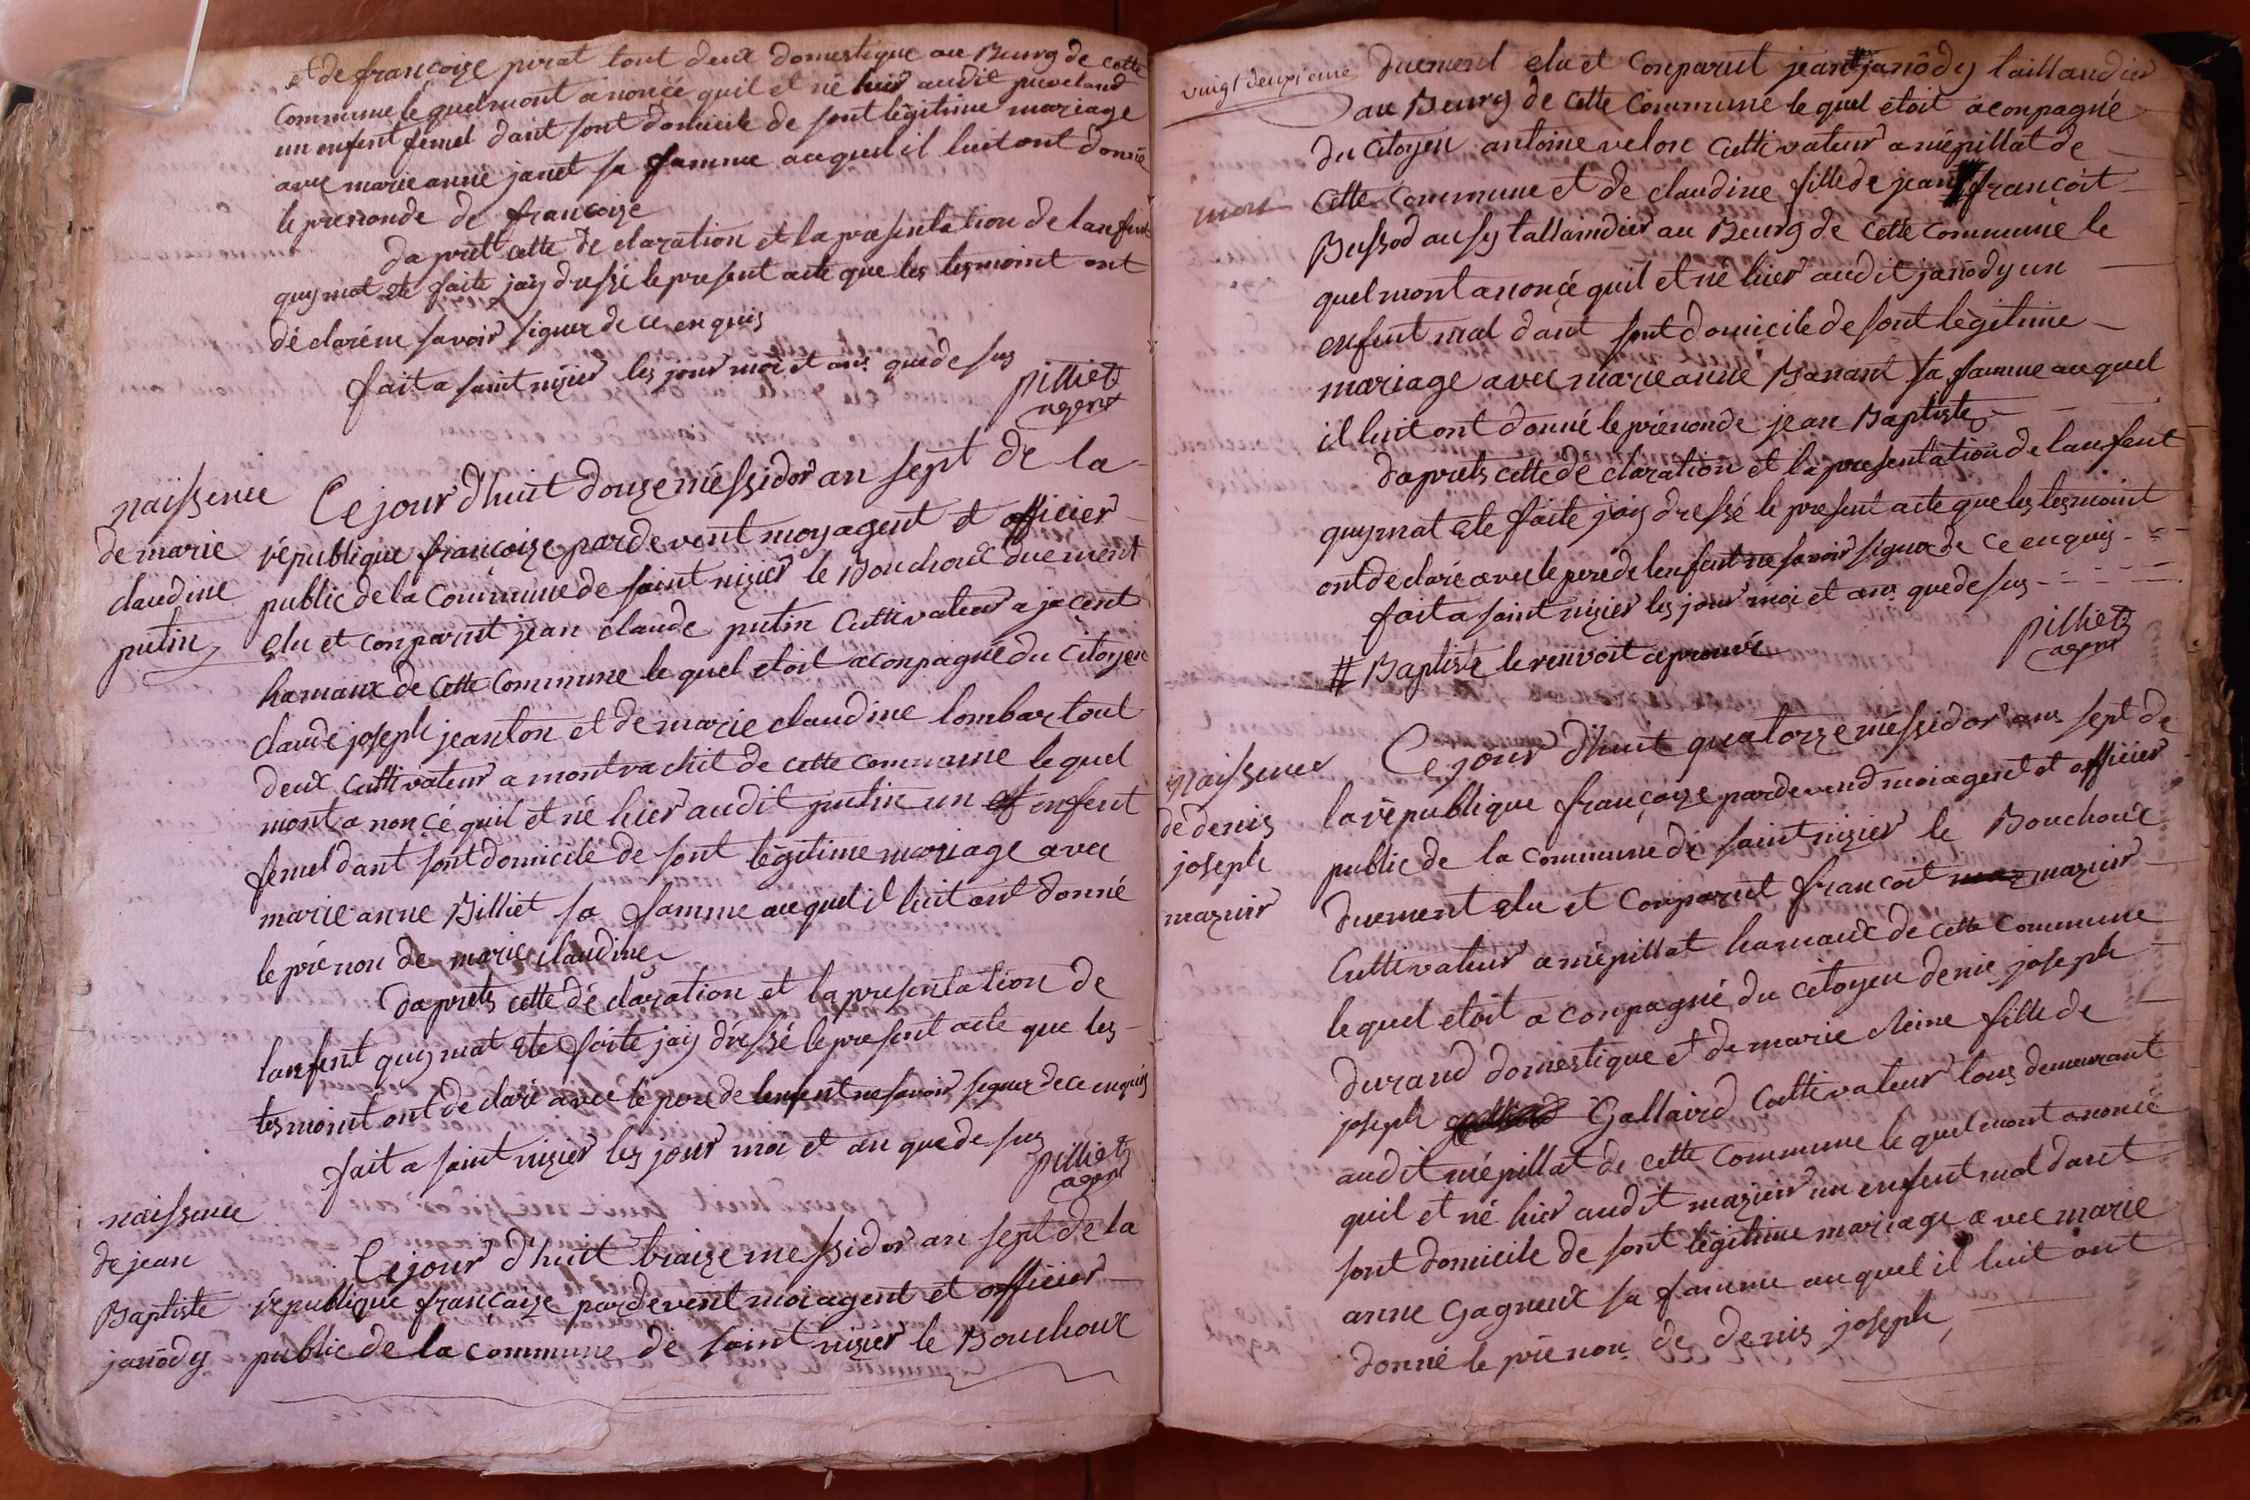 et de françoize pirat tout deux domestique au Bourg de cette
Commune le quel mont anoncé quil et né hier audit
un enfent femel dant sont domicile de sont légitime mariage
avec marie anne janet sa famme auquel il luit ont donné
le prénonde de françoize
daprêt cette dé claration et la presentation de lanfent
quymat ete faite jaiy dressé le present acte que les tesmoint ont
dé claréne savoir signer de ce enquis
fait a saint nizier les jour moi et an quede sus
pilliet
agent
naissence
de marie
claudine
putin
Ce jour d'huit douze méssidor an sept de la
république françoize pardevent moy agent et officier
public de la Commune de saint nizier le Bouchoux duement
elu et conparut jean claude putin Cultivateur a jacent
hamaux de cette Commune le quel etoit aconpagné du Citoyen
claude joseph jeanton et de marie claudine lombar tout
deux cultivateur a montrachit de cette commune le quel
mont a nonçé quil et né hier audit putin un enfent
femel dant sont domicile de sont légitime mariage avec
marie anne Billiet sa famme auquel il luit ont donné
le prénon de marie claudine
daprets cette dé claration et la presentation de
lanfent quymat ete faite jaiy dréssé le present acte que les
tesmoint ont de claré avec le pere de lenfent ne savoir signer de ce enquis
fait a saint nizier les jour moi et an quede sus
pilliet
agent
naissence
de jean
Baptiste
janôdy
Ce jour d'huit traize messidor an sept de la
république françaize pardevent moi agent et officier
public de la commune de saint nizier le Bouchoux
vingt deuxieme
mort
duement elu et Conparut jean # janôdy taillandier
au Bourg de cette Commune le quel etoit aconpagné
du Citoyen antoine velon Cultivateur a mépillat de
cette Commune et de claudine fille de jean françoit
Bussod ausy tallaindier au Bourg de cette Commune le
quel mont anonçé quil et né hier audit janôdy un
enfent mal dant sont domicile de sont légitime
mariage avec marie anne Banant sa famme auquel
il luit ont donné le prénonde jean Baptiste
daprets cette dé claration et la presentation de lanfent
quymat ete faite jaiy dressé le present acte que les tesmoint
ont de claré avec le pere de lenfent ne savoir signer de ce enquis
fait a saint nizier les jour moi et an quede sus
# Baptiste le renvoit aprouvé
pilliet
agent
naissence
de denis
joseph
mazuir
Ce jour d'huit quatorze méssidor an sept de
la république françoize pardevend moi agent et officier
public de la commune de saint nizier le Bouchoux
duement elu et Conparut francoit maz mazuir
Cultivateur a mépillat hamaux de cette Commune
le quel etoit a conpagné du citoyen denie joseph
durand domestique et de marie cleine fille de
joseph Gallaird Cultivateur tous demeurant
audit mépillat de cette Commune le quel mont anoncé
quil et né hier audit mazuir un enfent mal dant
sont domicile de sont légitime mariage avec marie
anne Gagneux sa famme auquel il luit ont
donné le prénon de denis joseph